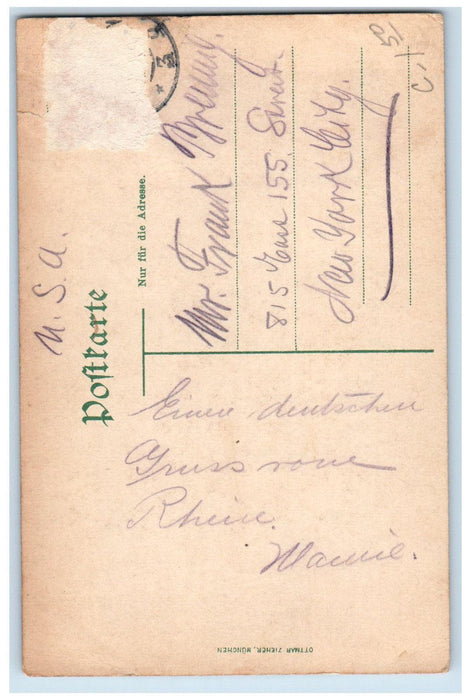 U. S. A.
Postkarte
Nur für die Adresse.
Mr. Frank
815 East 155 Street.
New York City.
Einen deutschen
Gruss vom
Rhein.
Mamie.
OTTMAR ZIEHER, MÜNCHEN